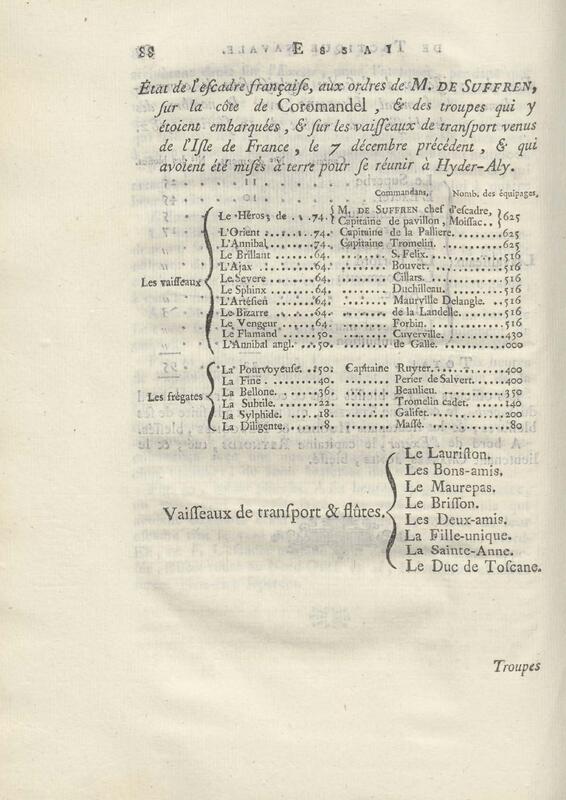 88 ESSAI
État de l'eſcadre françaiſe, aux ordres de M. DE SUFFREN,
ſur la côte de Coromandel, & des troupes qui y
étoient embarquées, & ſur les vaiſſeaux de tranſport venus
de l'Iſle de France, le 7 décembre précédent, & qui
avoient été miſes à terre pour ſe réunir à Hyder-Aly.
Commandans. Nomb. des équipages.
Les vaiſſeaux
Le Héros de . . 74. M. DE SUFFREN chef d'eſcadre, Capitaine de pavillon, Moiſſac.. 625
L'Orient . . . . . 74. Capitaine de la Palliere. . . . . . . 625
L'Annibal . . . . . 74. Capitaine Tromelin. . . . . . . 625
Le Brillant . . . . . 64. . . . . . . . S. Felix. . . . . . . 516
L'Ajax . . . . . 64. . . . . . . . Bouvet. . . . . . . 516
Le Sévere . . . . . 64. . . . . . . . Cillars. . . . . . . 516
Le Sphinx . . . . . 64. . . . . . . . Duchilleau. . . . . . . 516
L'Artéſien . . . . . 64. . . . . . . . Maurville Delangle. . . 516
Le Bizarre . . . . . 64. . . . . . . . de la Landelle. . . . . 516
Le Vengeur . . . . . 64. . . . . . . . Forbin. . . . . . . 516
Le Flamand . . . . 50. . . . . . . . Cuverville. . . . . . . 430
L'Annibal angl. . . 50. . . . . . . . de Galle. . . . . . . 000
Les frégates
La Pourvoyeuſe. 150. Capitaine Ruyter. . . . . . . 400
La Fine . . . . . 40. . . . . . . . Perier de Salvert. . . . 400
La Bellone. . . . . 36. . . . . . . . Beaulieu. . . . . . . 350
La Subtile. . . . . 22. . . . . . . . Tromelin cadet. . . . . 140
La Sylphide. . . . 18. . . . . . . . Galifet. . . . . . . 200
La Diligente. . . . 8. . . . . . . . Maſſé. . . . . . . 80
Vaiſſeaux de tranſport & flûtes.
Le Lauriſton.
Les Bons-amis.
Le Maurepas.
Le Briſſon.
Les Deux-amis.
La Fille-unique.
La Sainte-Anne.
Le Duc de Toſcane.
Troupes